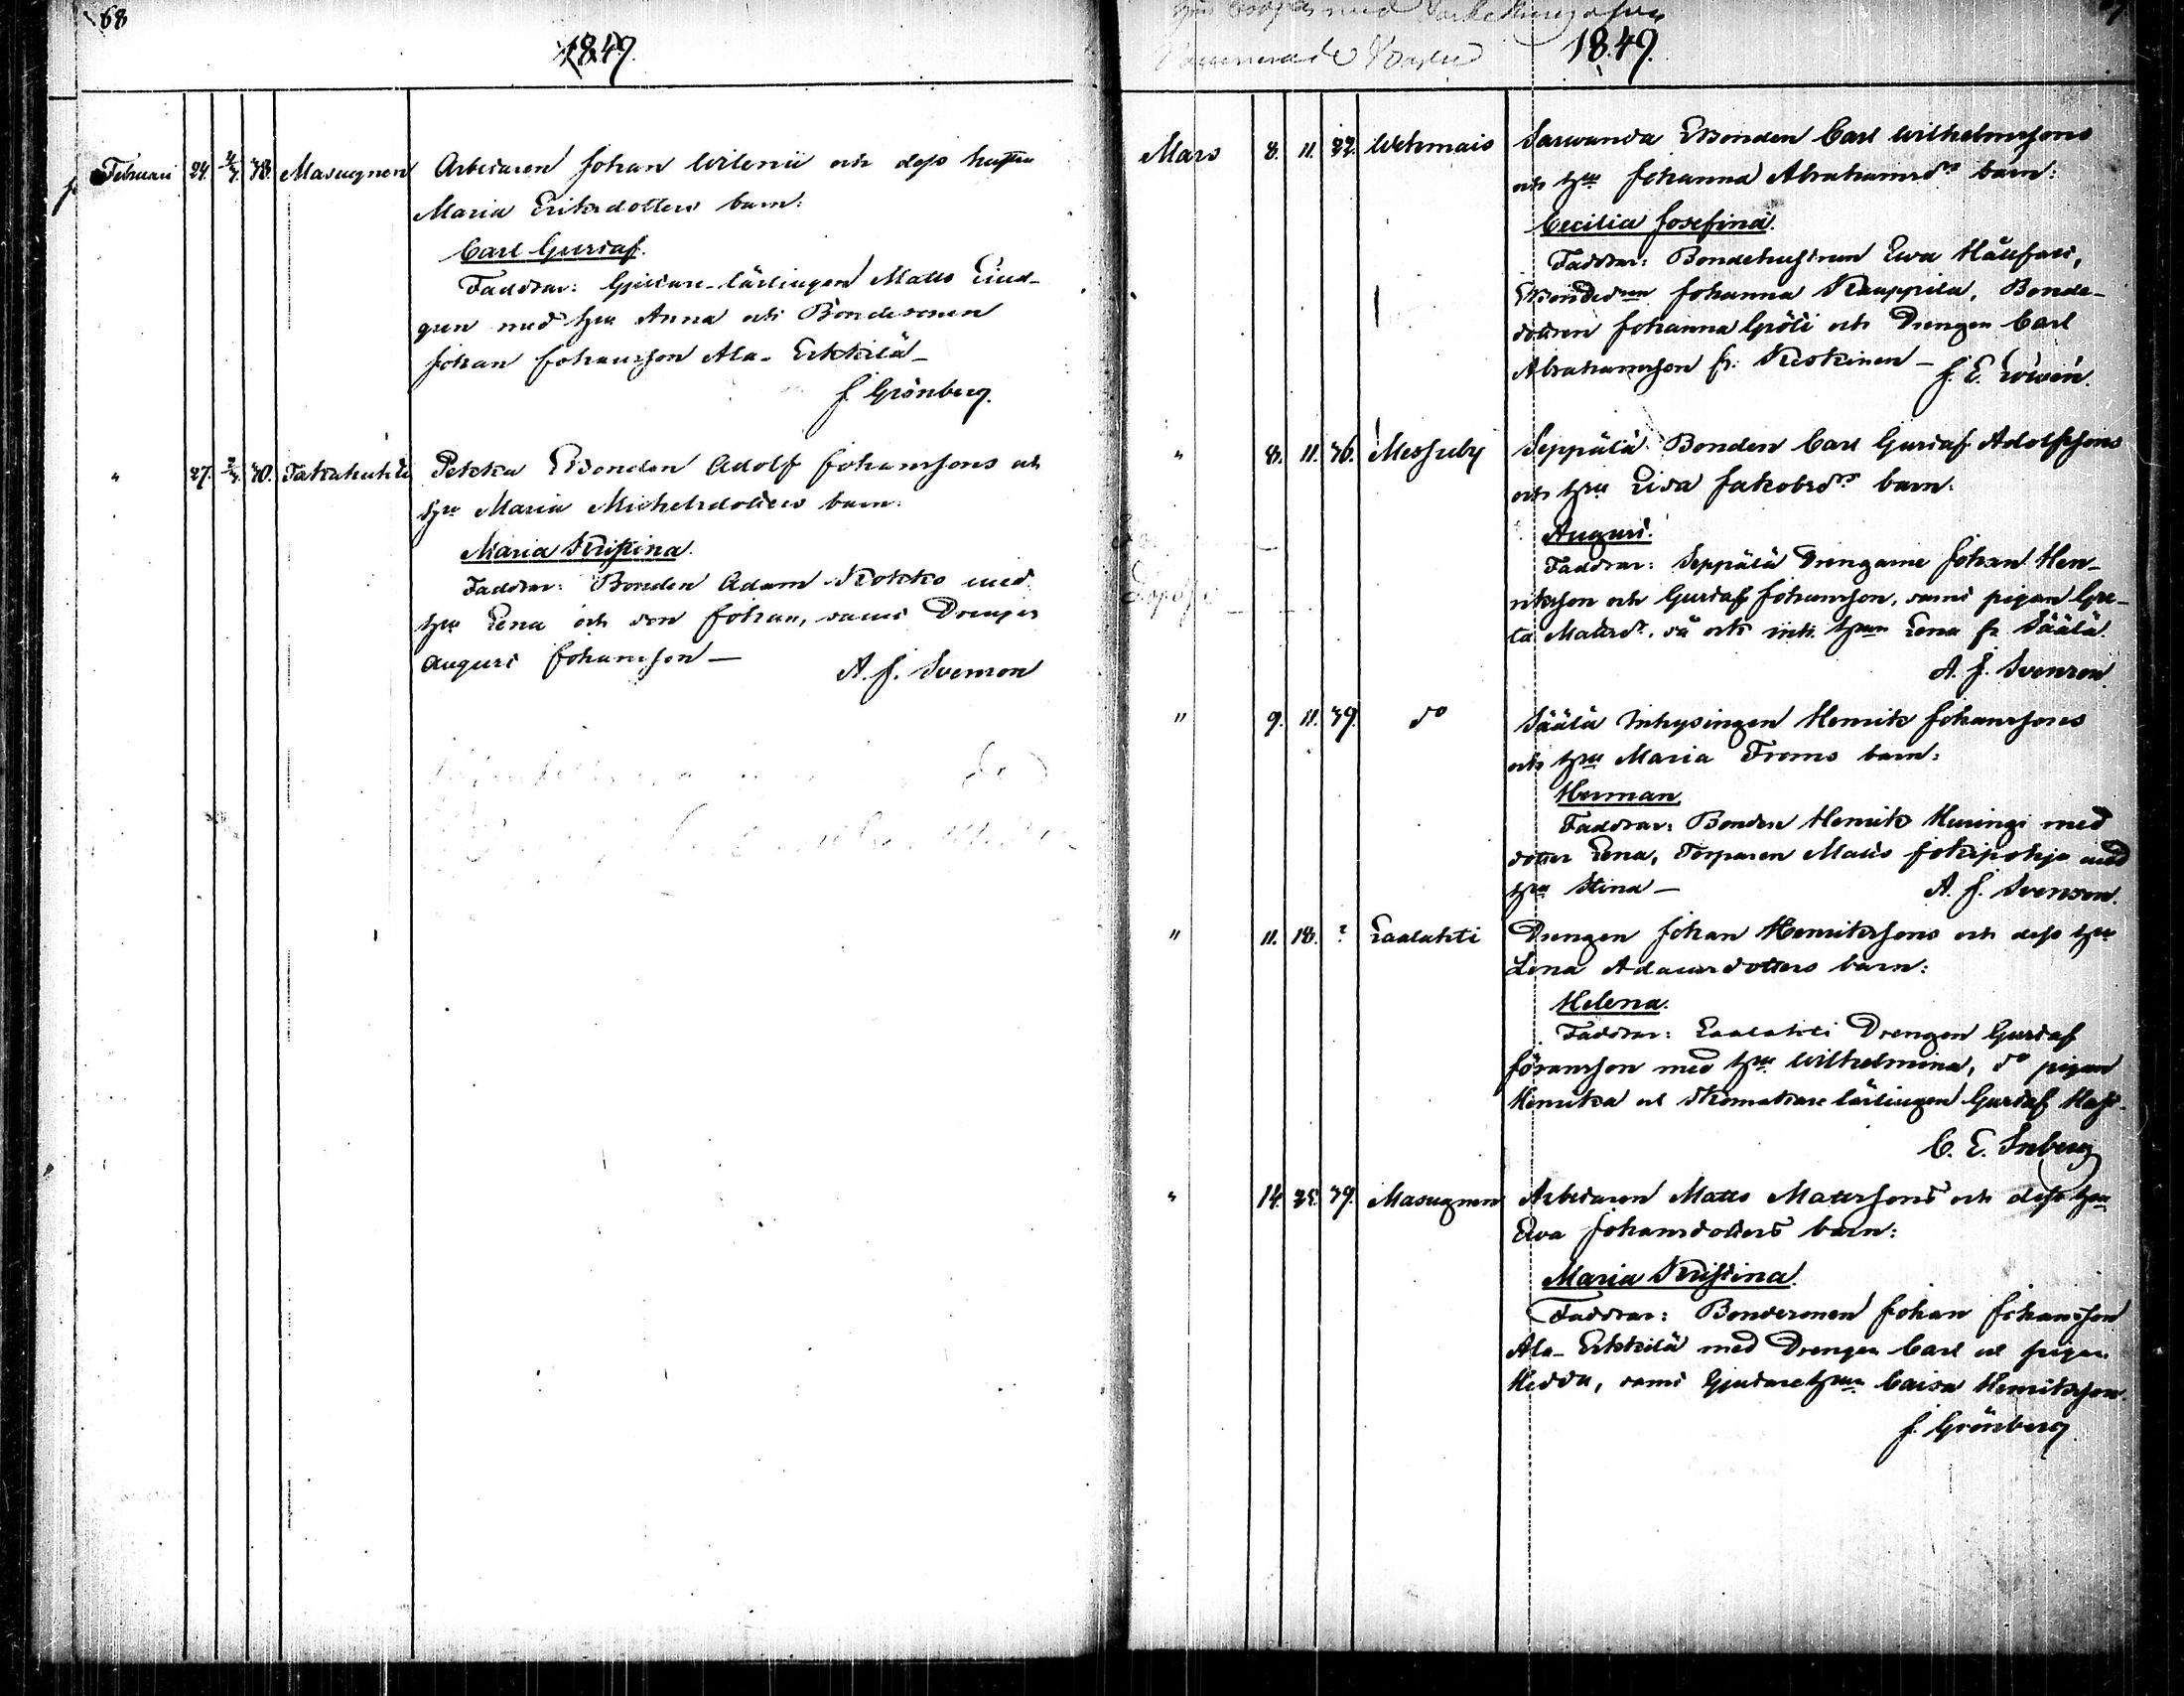 68
1849.
Februari 24. 4/3. 38. Masugnen Arbetaren Johan Wilenii och dess hustru
Maria Eriksdotters barn:
Carl Gustaf.
Faddrar: Gjutare-lärlingen Matts Lind-
gren med hru Anna och Bondesonen
Johan Johansson Ala-Erkkilä –
J. Grönberg.
" 27. 30. Takahuhti Pekka Bonden Adolf Johanssons och
hru Maria Michelsdotters barn:
Maria Kristina.
Faddrar: Bonden Adam Kokko med
hru Lena och son Johan, samt Drengen
August Johansson –
A. J. Svenson
1849.
Mars 8. 11. 22. Wehmais Sarwanda Bonden Carl Wilhelmssons
och hru Johanna Abrahamsdrs barn:
Cecilia Josefina.
Faddrar: Bondehustrun Ewa
Johanna Kauppila, Bonde-
dottren Johanna Gröti och Drengen Carl
Abrahamsson fr. Keskinen –
" 8. 11. 36. Messuby Seppälä Bonden Carl Gustaf Adolfssons
och hru Lisa Jakobsdrs barn:
August.
Faddrar: Seppälä Drengarne Johan Hen-
riksson och Gustaf Johansson, samt pigan Gre-
ta Mattsdr, så ock inh. hrun Lena fr. Säälä.
A. J. Svenson.
" 9. 11. 39. do Säälä Inhysingen Henrik Johanssons
och hru Maria Froms barn:
Herman.
Faddrar: Bonden Henrik Huringi med
dotter Lena, Torparen Matts Jokipohja med
hru Stina –
A. J. Svenson.
" 11. 18. ? Laalahti Drengen Johan Henrikssons och dess hru
Lena Adamsdotters barn:
Helena.
Faddrar: Laalahti Drengen Gustaf
Göransson med hru Wilhelmina, do pigan
Henrika och Skomakare lärlingen Gustaf
C. E. Inberg
" 14. 25. 39. Masugnen Arbetaren Matts Mattssons och dess hru
Ewa Johansdotters barn:
Maria Kristina.
Faddrar: Bondesonen Johan Johansson
Ala-Erkkilä med Drengen Carl och pigan
Hedda, samt Gjutarehrun Caisa Henriksson.
J. Grönberg